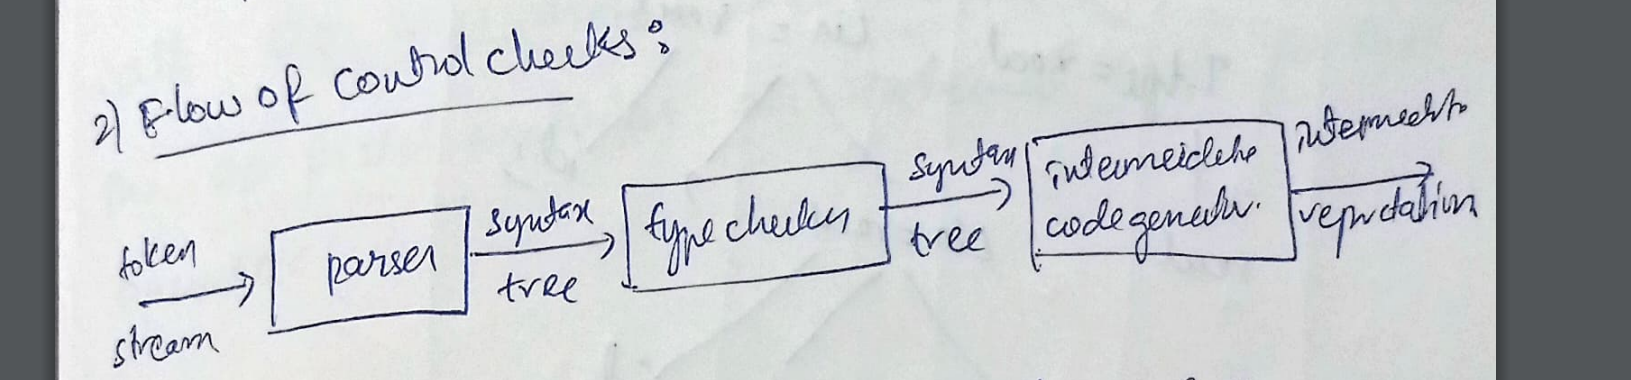 2) Flow of control checks:
token
stream
parser
syntax
tree
type checker
syntax
tree
intermediate
code generator.
intermediate
representation